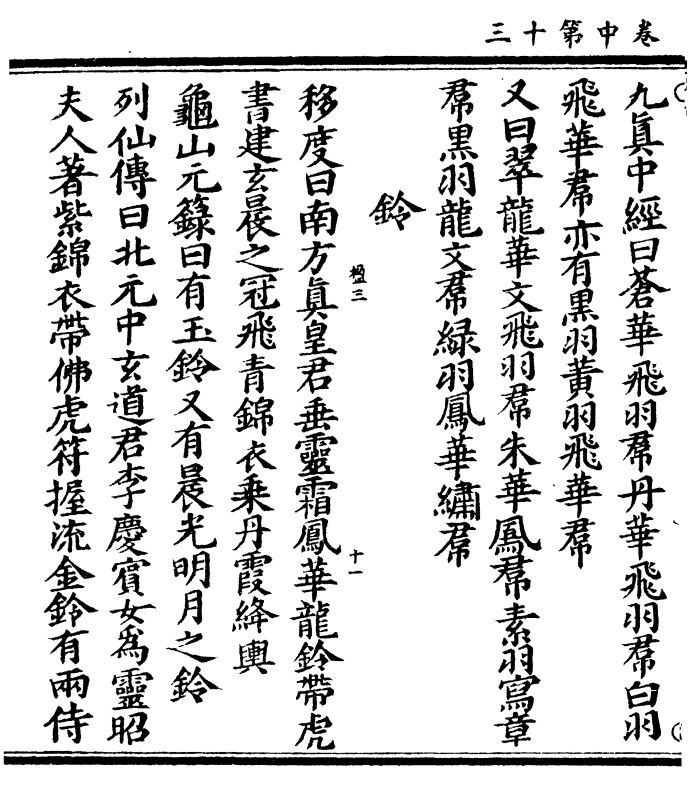 卷中第十三
九眞中經曰蒼華飛羽帬丹華飛羽帬白羽
飛華帬亦有黑羽黃羽飛華帬
又曰翠龍華文飛羽帬朱華鳳帬素羽寫章
帬黑羽龍文帬緑羽鳳華繡帬
鈴
楹三
十一
移度曰南方眞皇君垂靈霜鳳華龍鈴帶虎
書建玄晨之冠飛青錦衣乘丹霞絳輿
龜山元籙曰有玉鈴又有晨光明月之鈴
列仙傳曰北元中玄道君李慶賓女爲靈昭
夫人著紫錦衣帶佛虎符握流金鈴有兩侍